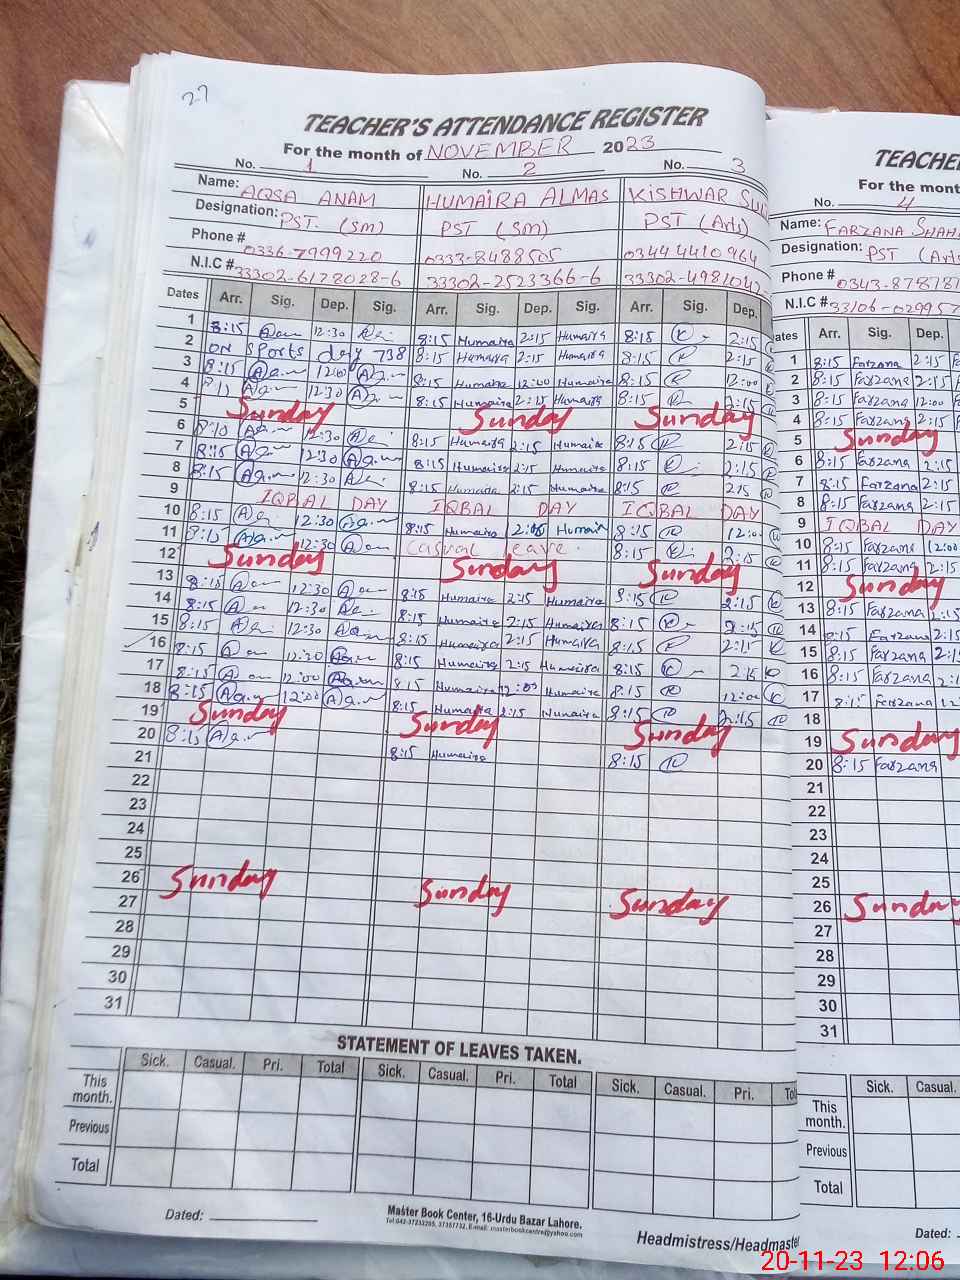 27
TEACHER'S ATTENDANCE REGISTER
For the month of NOVEMBER 2023
No. 1 No. 2 No. 3
Name: AQSA ANAM HUMAIRA ALMAS KISHWAR
Designation: PST. (Sm) PST (Sm) PST (Arts)
Phone # 0336-7999220 0333-8488505 0344 4410964
N.I.C # 33302-6178028-6 33302-2523366-6 33302-4981042-
Dates Arr. Sig. Dep. Sig. Arr. Sig. Dep. Sig. Arr. Sig. Dep.
1 8:15 12:30 8:15 Humaira 2:15 Humaira 8:15 2:15
2 ON Sports day 738 8:15 Humaira 2:15 Humaira 8:15 2:15
3 8:15 12:00 8:15 Humaira 12:00 Humaira 8:15 12:00
4 12:30 8:15 Humaira 2:15 Humaira 8:15 2:15
5 Sunday Sunday Sunday
6 8:10 12:30 8:15 Humaira 2:15 Humaira 8:15 2:15
7 8:15 12:30 8:15 Humaira 2:15 Humaira 8:15 2:15
8 8:15 12:30 8:15 Humaira 2:15 Humaira 8:15 2:15
9 IQBAL DAY IQBAL DAY IQBAL DAY
10 8:15 12:30 8:15 Humaira Humair 8:15 12:00
11 8:15 12:30 Casual leave. 8:15 2:15
12 Sunday Sunday Sunday
13 8:15 12:30 8:15 Humaira 2:15 Humaira 8:15 2:15
14 8:15 12:30 8:15 Humaira 2:15 Humaira 8:15 2:15
15 8:15 12:30 8:15 Humaira 2:15 Humaira 8:15 2:15
16 8:15 12:30 8:15 Humaira 2:15 Humaira 8:15 2:15
17 8:15 12:00 8:15 Humaira 12:00 Humaira 8:15 12:00
18 8:15 12:00 8:15 Humaira 2:15 Humaira 8:15 2:15
19 Sunday Sunday Sunday
20 8:15 8:15 Humaira 8:15
21
22
23
24
25
26 Sunday Sunday Sunday
27
28
29
30
31
STATEMENT OF LEAVES TAKEN.
Sick. Casual. Pri. Total Sick. Casual. Pri. Total Sick. Casual. Pri.
This month.
Previous
Total
Dated:
Master Book Center, 16-Urdu Bazar Lahore.
Tel:042-37232265, 37357732, E-mail: masterbookcentre@yahoo.com
Headmistress/Headmaste
TEACHE
For the mont
No. 4
Name: FARZANA SHAH
Designation: PST (Arts
Phone # 0343-878787
N.I.C # 33106-029957
ates Arr. Sig. Dep.
1 8:15 Farzana 2:15
2 8:15 Farzana 2:15
3 8:15 Farzana 12:00
4 8:15 Farzana 2:15
5 Sunday
6 8:15 Farzana 2:15
7 8:15 Farzana 2:15
8 8:15 Farzana 2:15
9 IQBAL DAY
10 8:15 Farzana 12:00
11 8:15 Farzana 2:15
12 Sunday
13 8:15 Farzana 2:15
14 8:15 Farzana 2:15
15 8:15 Farzana 2:15
16 8:15 Farzana 2:1
17 8:15 Farzana 12
18
19 Sunday
20 8:15 Farzana
21
22
23
24
25
26 Sunday
27
28
29
30
31
Sick. Casual.
This month.
Previous
Total
Dated:
20-11-23 12:06